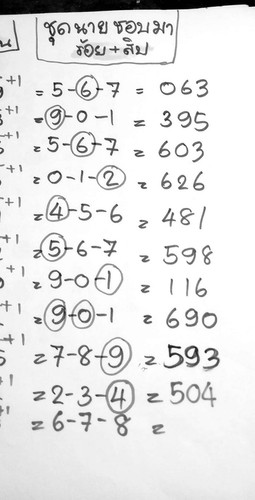 ชุดนายชอบมา
ร้อย+สิบ
+1 = 5-6-7 = 063
+1 = 9-0-1 = 395
+1 = 5-6-7 = 603
+1 = 0-1-2 = 626
+1 = 4-5-6 = 481
+1 = 5-6-7 = 598
+1 = 9-0-1 = 116
+1 = 9-0-1 = 690
+1 = 7-8-9 = 593
+1 = 2-3-4 = 504
+1 = 6-7-8 =